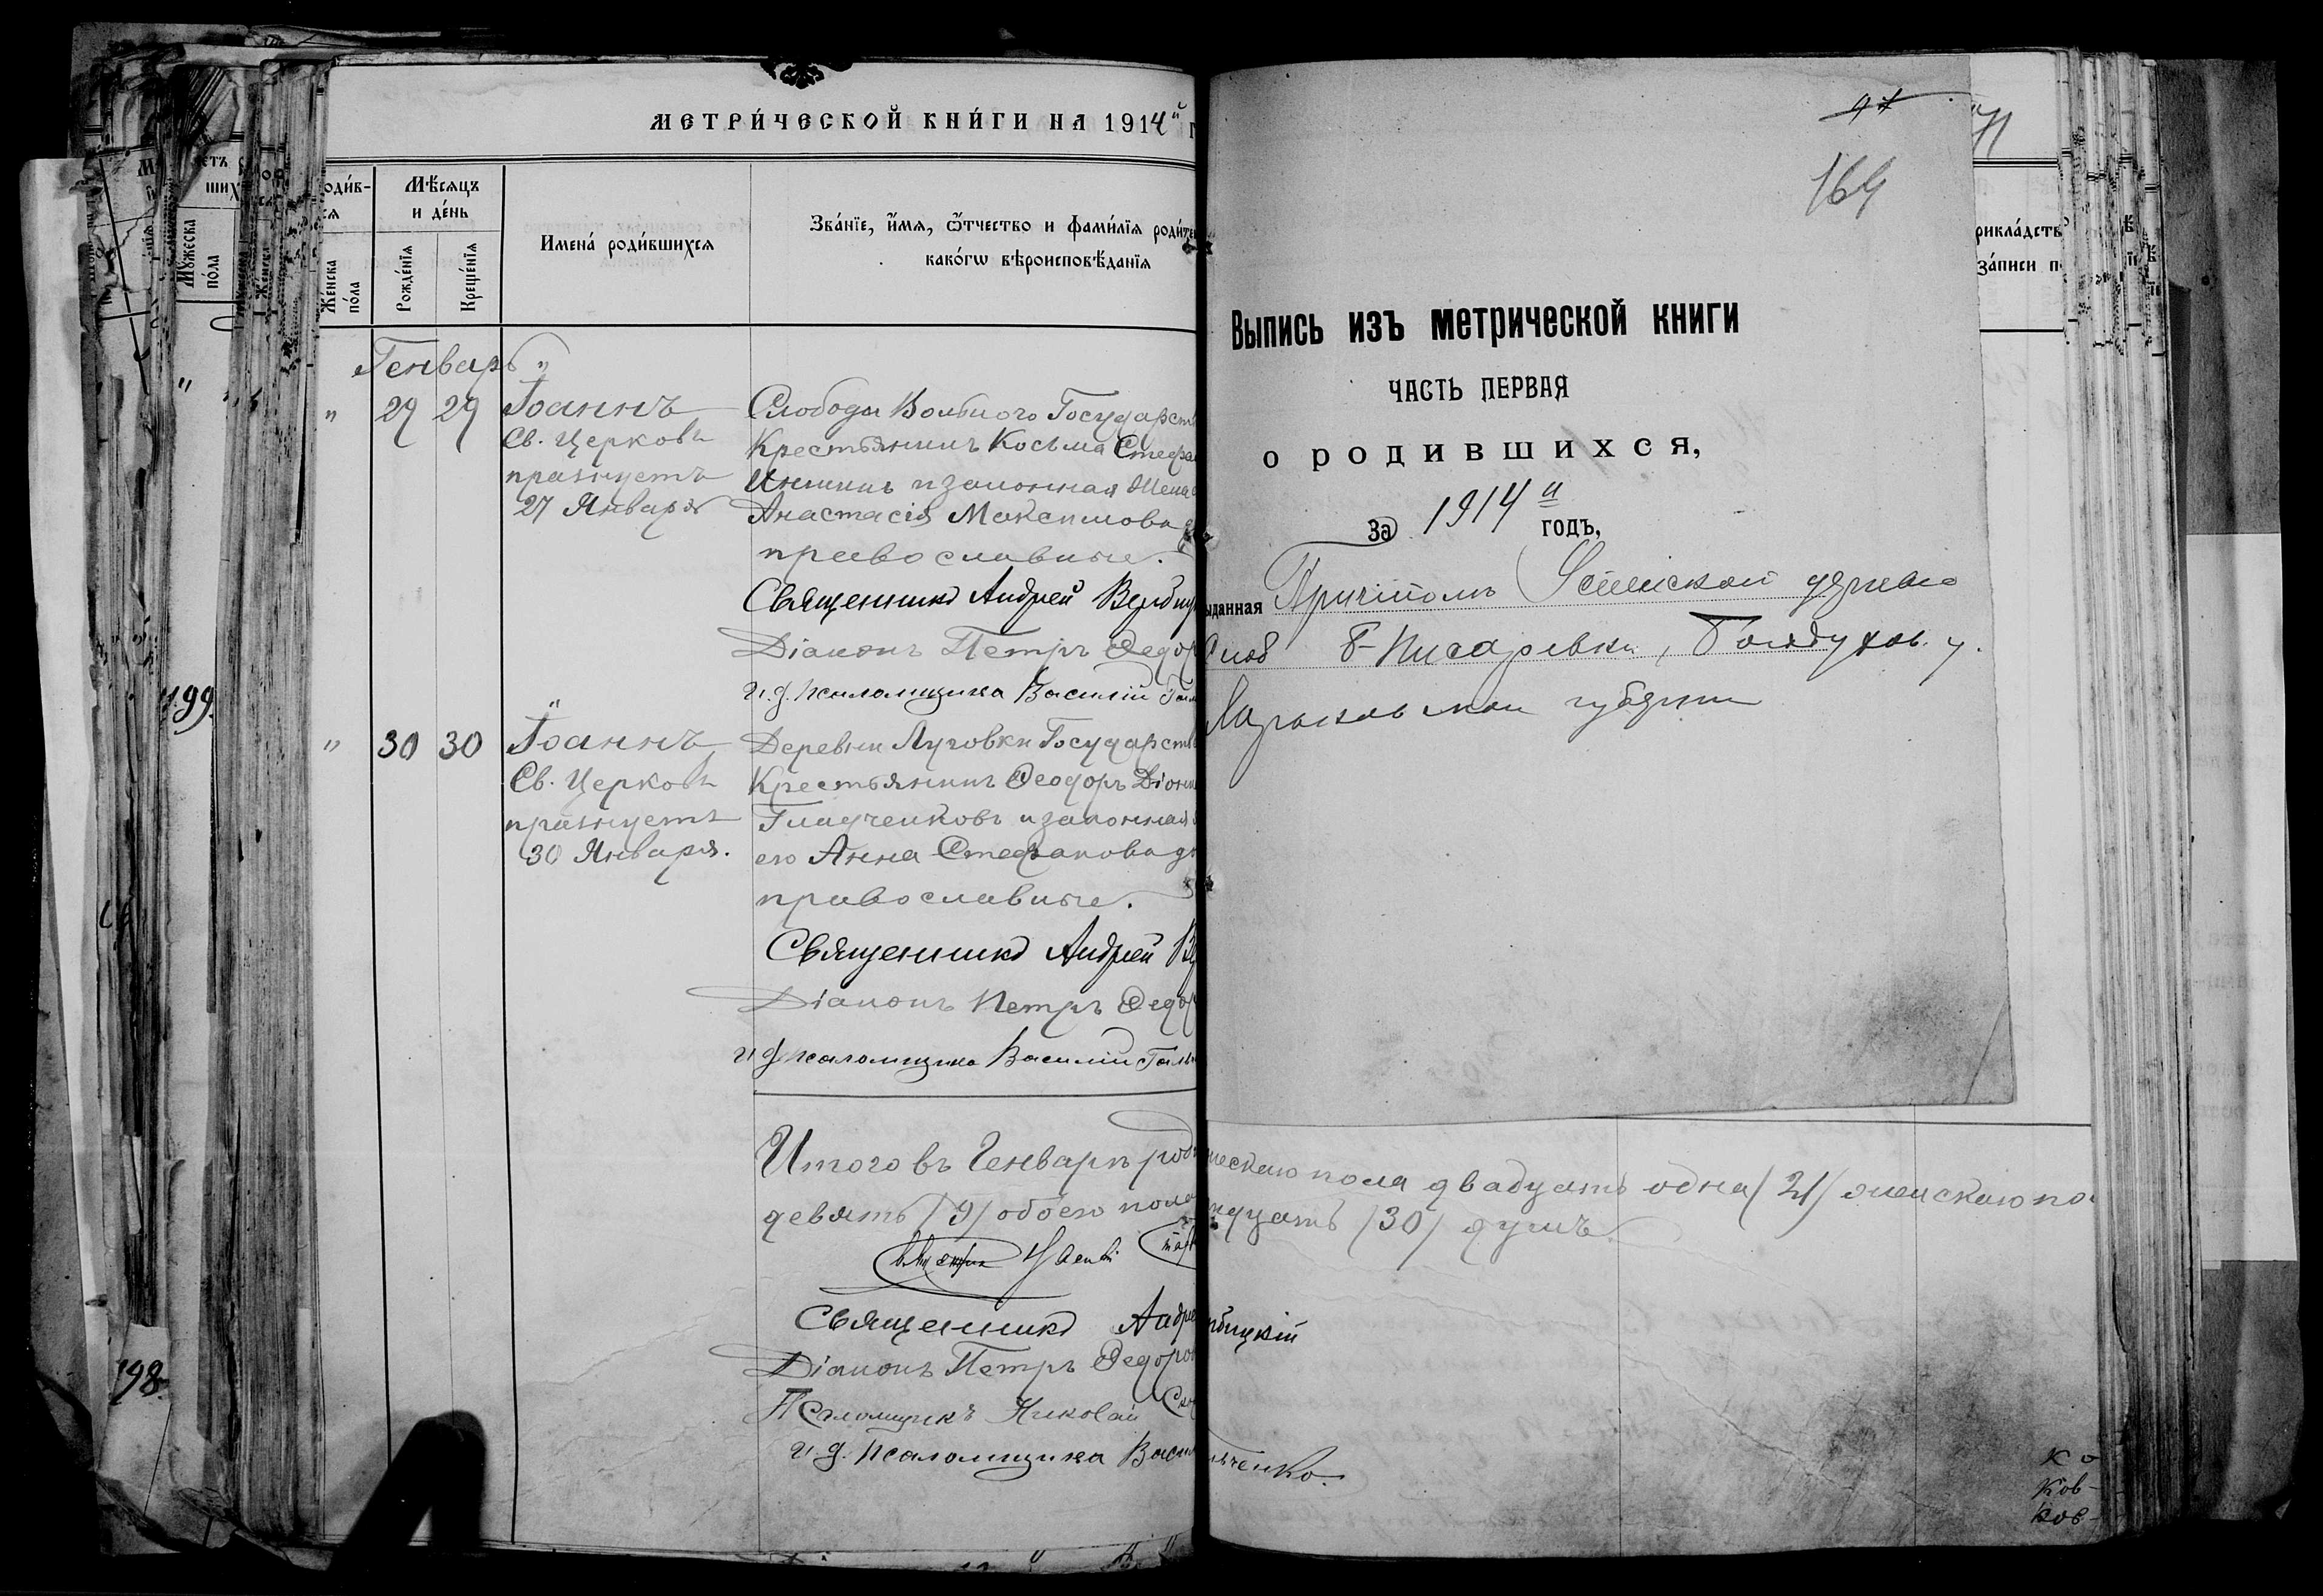 МЕТРИ́ЧЕСКОЙ КНИ́ГИ НА 1914й
Мѣ́сяцъ
и де́нь
Же́нска
по́ла
Рожде́нїя
Креще́нїя
Имена́ роди́вшихся
Зва́нїе, и҆́мя, ѻ҆́тчество и фами́лїя роди́те
како́гѡ вѣроисповѣ́данїя
Генварь
" 29 29 Іоаннъ
Св. Церковь
празнуетъ
27 Января
Слободы Вольного Государств
Крестьянинъ Косьма Стефа
и законная жена
Анастасія Максимова
православные.
Священникъ Андрей Вербиц
Діаконъ Петръ Ѳедор
и. д. псаломщика Василій Гал
" 30 30 Іоаннъ
Св. Церковь
празнуетъ
30 Января.
Деревни Луговки Государств
Крестьянинъ Ѳеодоръ Діони
Гладченковъ и законная
его Анна Стефанова
православные.
Священникъ Андрей В
Діаконъ Петръ Ѳедор
и д псаломщика Василій Галь
Итого въ Генварѣ роди ческаго пола двадцать одна /21/ женскаго по
девять /9/ обоего пола идцать /30/ душъ.
Священникъ Андре рбицкій
Діаконъ Петръ Ѳедоро
Псаломщикъ Николай
и. д. псаломщика Васил ьченко.
199.
198
164
Выпись изъ метрической книги
ЧАСТЬ ПЕРВАЯ
о родившихся,
За 1914й годъ,
ыданная Причтомъ Успенской церкви
Слоб Б-Писаревки, Богодухов. у.
Харьковской губерніи
рикла́дств
за́писи п
ко
ков-
ков-